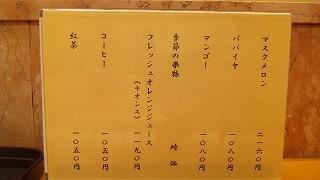 マスクメロン 二一六〇円
パパイヤ 一〇八〇円
マンゴー 一〇八〇円
季節の果物 時価
フレッシュオレンジジュース
(十オンス) 一一九〇円
コーヒー 一〇五〇円
紅茶 一〇五〇円